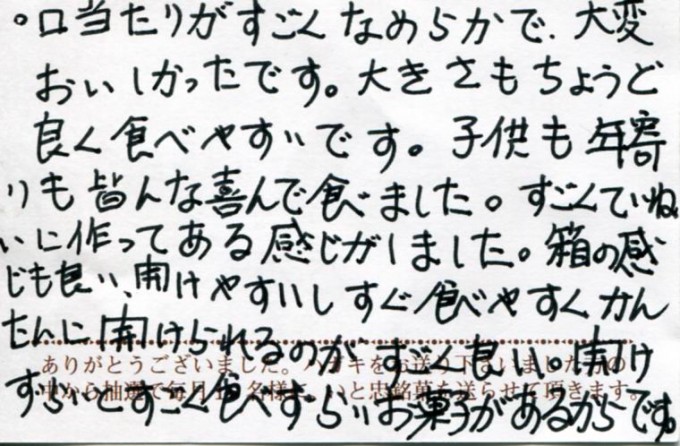 。口当たりがすごくなめらかで、大変
おいしかったです。大きさもちょうど
良く食べやすいです。子供も年寄
りも皆んな喜んで食べました。すごくていね
いに作ってある感じがしました。箱の感
じも良い、開けやすいしすぐ食べやすくかん
たんに開けられるのがすごく良い。開け
ありがとうございました。ハガキをお送り下さいました方の
ずらいとすごく食べずらいお菓子があるからです。
中から抽選で毎月 名様に、いと忠銘菓を送らせて頂きます。